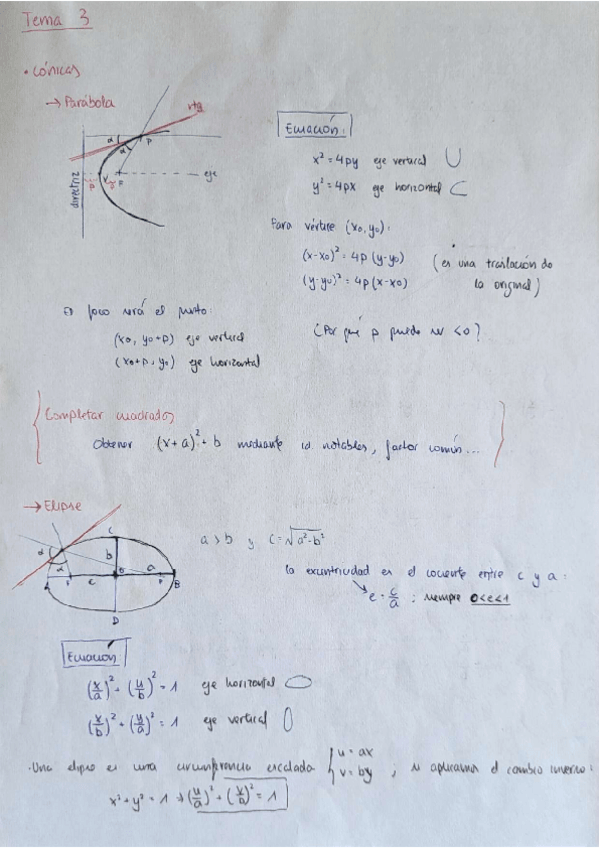 Tema 3
• Cónicas
→ Parábola
rtg
α
α
P
directriz
P
V
F
eje
Ecuación:
x² = 4py eje vertical
y² = 4px eje horizontal
Para vértice (x₀, y₀):
(x-x₀)² = 4p (y-y₀)
(y-y₀)² = 4p (x-x₀)
(es una traslación de
la original)
El foco será el punto:
(x₀, y₀+p) eje vertical
(x₀+p, y₀) eje horizontal
¿Por qué p puede ser <0?
Completar cuadrados
Obtener (x+a)² + b mediante id. notables, factor común...
→ Elipse
C
α
α
b
a
c
A
F
O
F
B
D
a > b y c = √a²-b²
la excentricidad es el cociente entre c y a:
e = c/a ; siempre 0<e<1
Ecuación
(x/a)² + (y/b)² = 1 eje horizontal
(x/b)² + (y/a)² = 1 eje vertical
· Una elipse es una circunferencia escalada { u = ax
v = by ; si aplicamos el cambio inverso:
x² + y² = 1 → (u/a)² + (v/b)² = 1